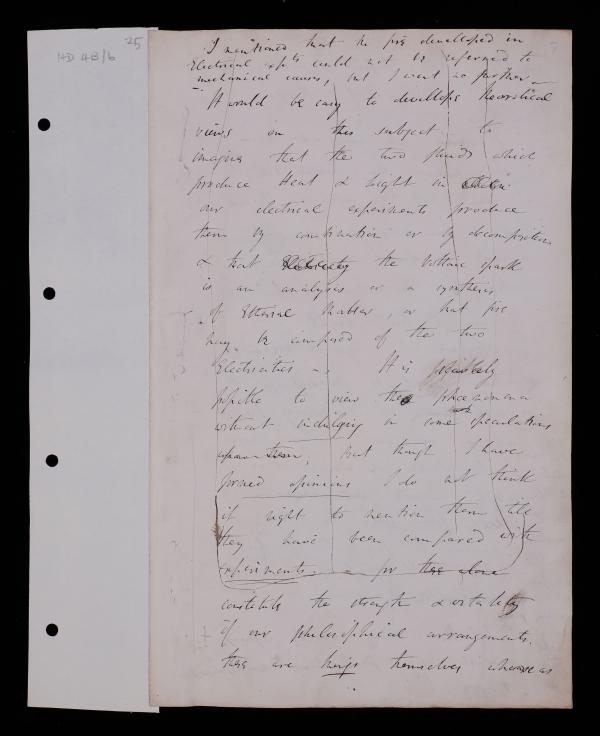 25
HD 4B/6
I mentioned that the fire developed in
Electrical expts could not be referred to
mechanical causes, but I went no further —
It would be easy to develope theoretical
views on this subject to
imagine that the two fluids which
produce Heat & Light in
our electrical experiments produce
them by combination or by decomposition
& that Electricity the Voltaic spark
is an analysis or a synthesis
of Etherial Matter, or that fire
may be composed of the two
Electricities —. It is possibly
possible to view these phaenomena
without indulging in some speculations
upon them, but though I have
formed opinions I do not think
it right to mention them till
they have been compared with
experiments — for these alone
constitute the strength &
of our philosophical arrangements.
these are things themselves whereas